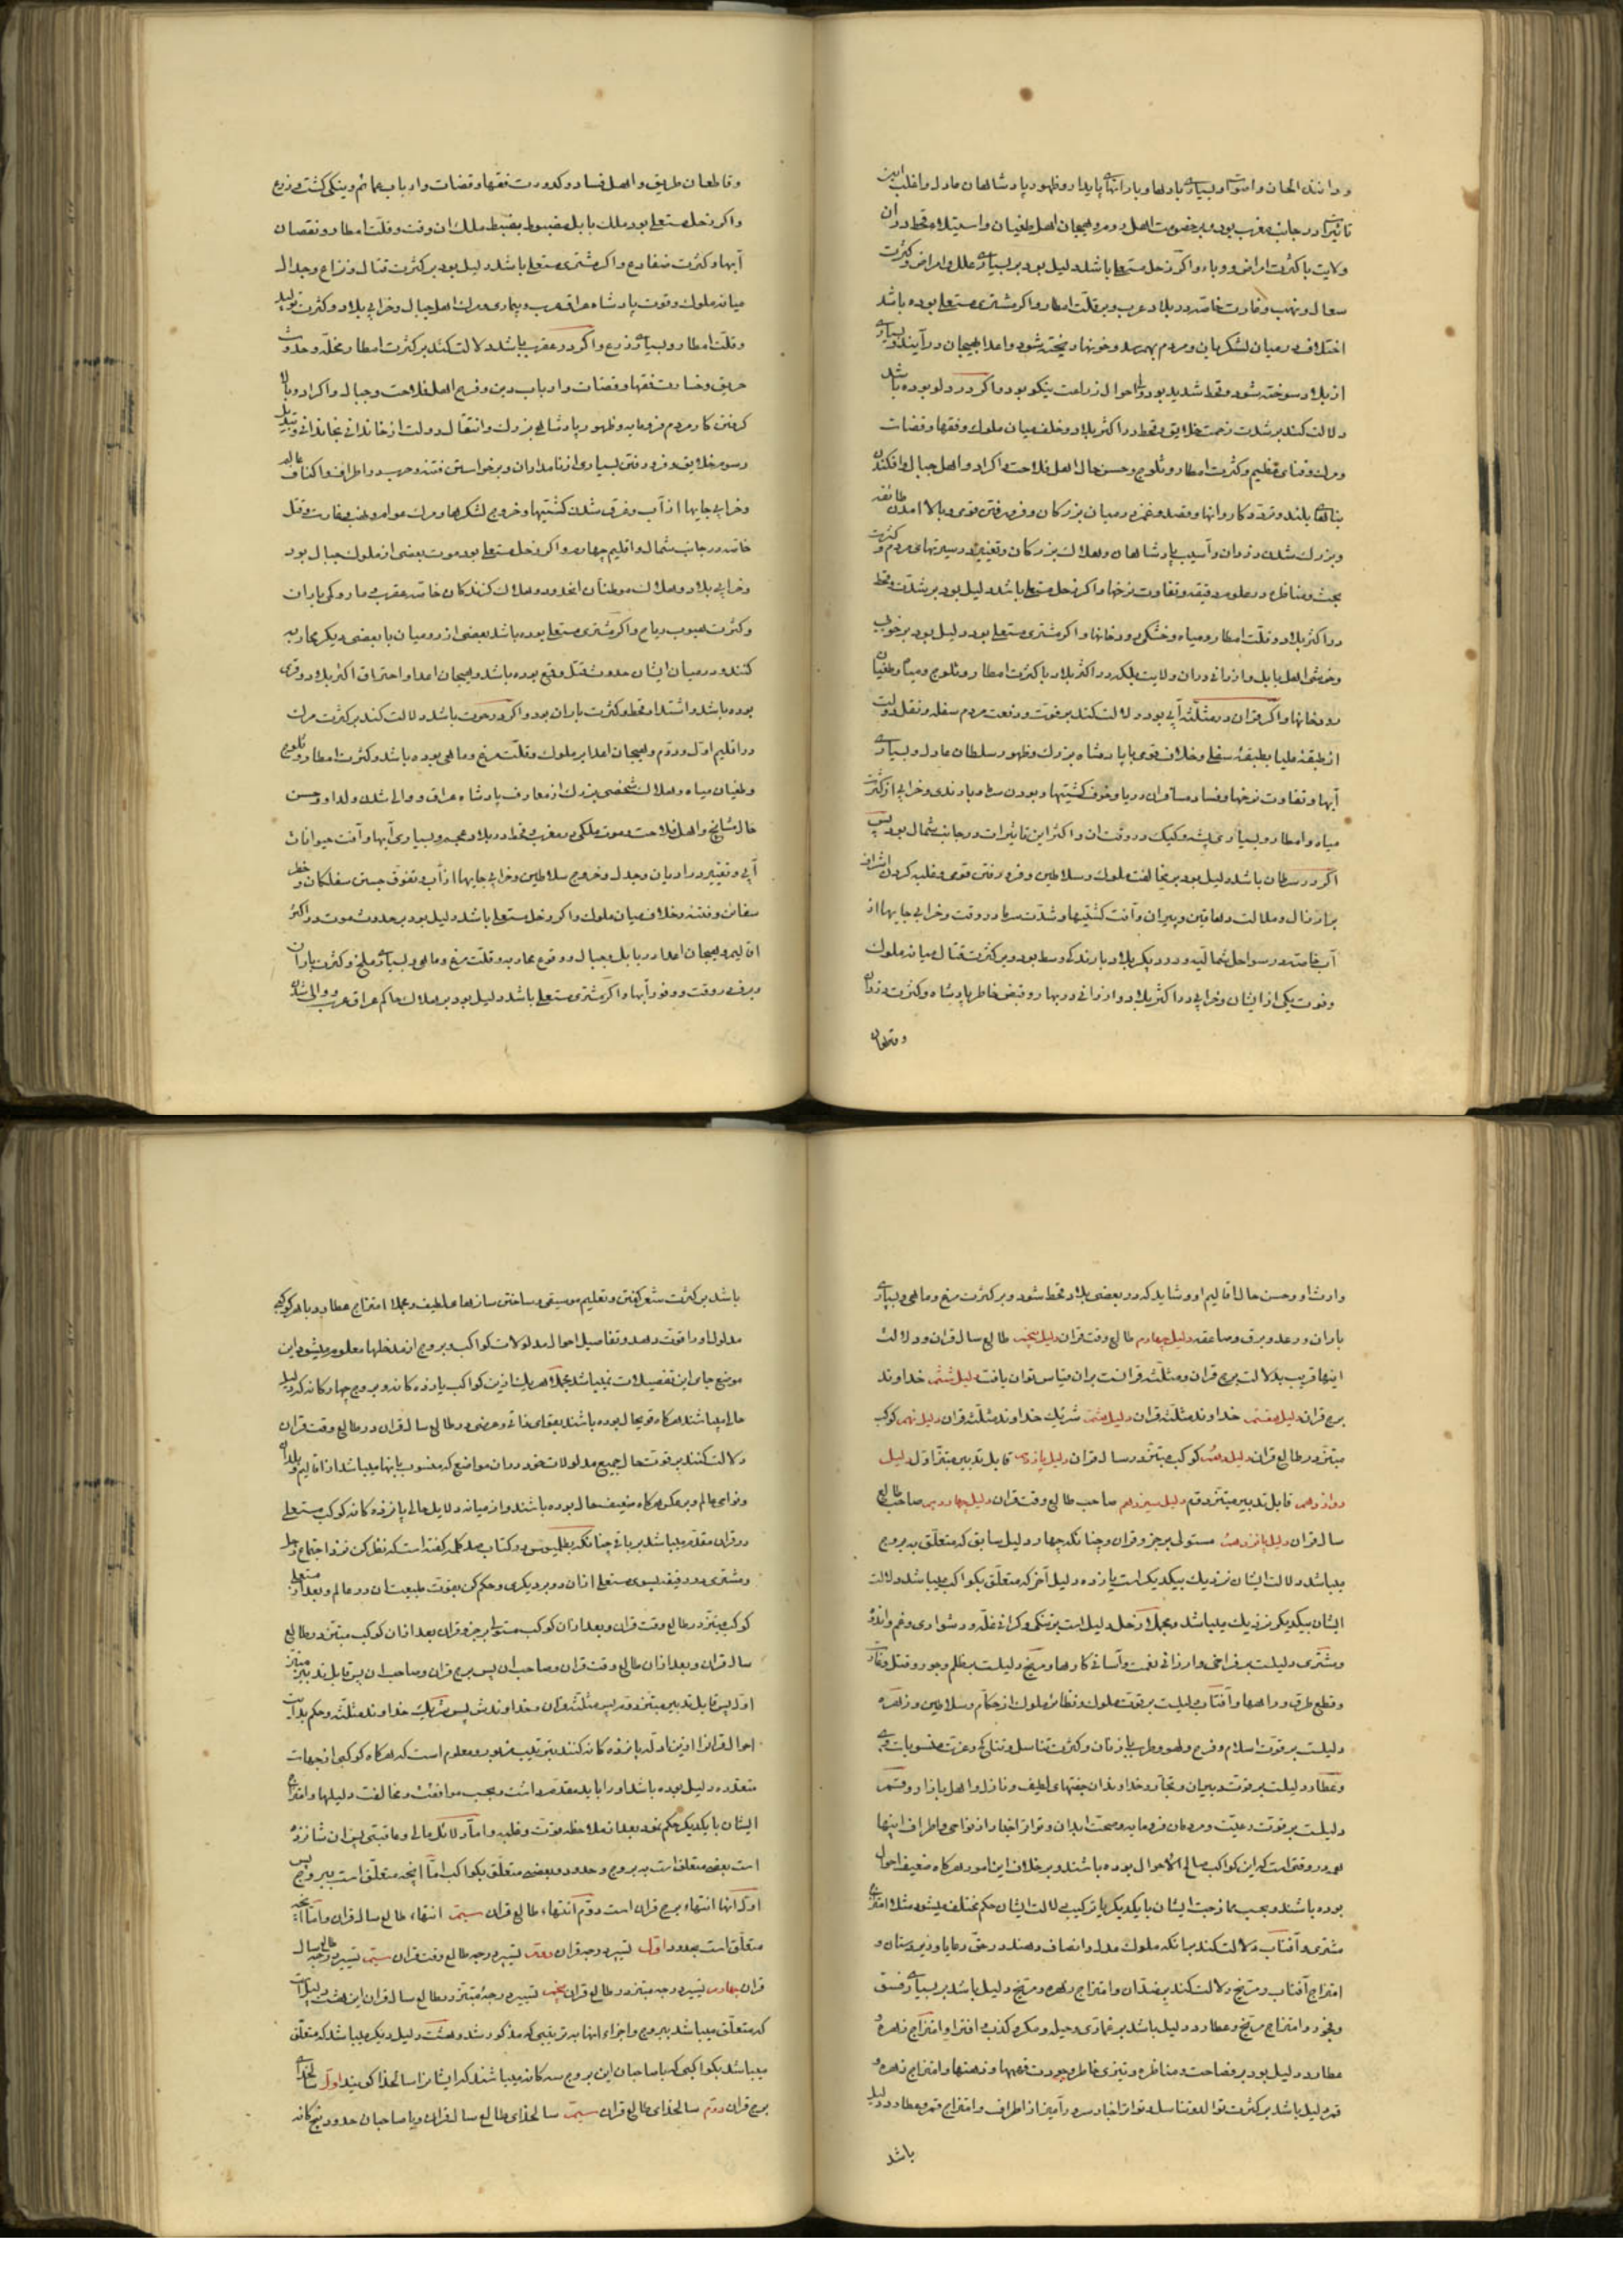 و دانستن الحان و اصوات و بسیاری بادها و بارانهای پایدار و ظهور پادشاهان عادل و اغلب این
تاثیرات در جانب مغرب بود و بر خصومت اهل روم و هیجان اهل طغیان و استیلاء قحط در آن
ولایت با کثرت امراض و وباء و اگر زحل مستعلی باشد دلیل بود بر بسیاری علل و امراض و کثرت
سعال و نهب و غارت خاصه در بلاد عرب و بر قلت امطار و اگر مشتری مستعلی بوده باشد
اختلاف در میان لشکریان و مردم بهم رسد و خونها ریخته شود و اعدا بهیجان درآیند و بسیاری
از بلاد سوخته شود و قحط شدید بود و احوال زراعت نیکو بود و اگر در دلو بوده باشد
دلالت کند بر شدت زحمت خلایق و قحط در اکثر بلاد و خلف میان ملوک و فقها و قضات
و مرک و فنای عظیم و کثرت امطار و ثلوج و حسن حال اهل فلاحت و اکراد و اهل جبال و افکندن
بناهای بلند و تردد کاروانها و قصد و غمز در میان بزرکان و فرو رفتن قومی و بالا آمدن طائفه
و بزرک شدن دزدان و آسیب پادشاهان و هلاک بزرکان و تغییر در سیرتهای مردم و کثرت
بحث و مناظره در علوم دقیقه و تفاوت نرخها و اگر زحل مستعلی باشد دلیل بود بر شدت قحط
در اکثر بلاد و قلت امطار و میاه و خشکی رودخانها و اگر مشتری مستعلی بود دلیل بود بر خوبی
و خوشی اهل بابل و ارزانی در آن ولایت بلکه در اکثر بلاد با کثرت امطار و ثلوج و میاه و طغیان
رودخانها و اگر قران در مثلثه آبی بود دلالت کند بر قوت و رفعت مردم سفله و نقل دولت
از طبقه علیا بطبقه سفلی و خلاف قومی با پادشاه بزرک و ظهور سلطان عادل و بسیاری
آبها و تفاوت نرخها و فساد مسافران دریا و خوف کشتیها و بودن سرما و باد ندی و خرابی از کثرت
میاه و امطار و بسیاری پشه و کیک در وقت آن و اکثر این تاثیرات در جانب شمال بود پس
اگر در سرطان باشد دلیل بود بر مخالفت ملوک و سلاطین و فرو رفتن قومی و غلبه کردن اشراف
بر ارذال و ملالت دهاقین و پیران و آفت کشتیها و شدت سرما در وقت و خرابی جایها از
آب خاصه در سواحل شمالیه و در دیگر بلاد بارندکی وسط بود و بر کثرت قتال میانه ملوک
و فوت یکی از ایشان و خرابی در اکثر بلاد و ارزانی در بهار و قبض خاطر پادشاه و کثرت دزدان
و قطعان
و قاطعان طریق و اهل فساد و کدورت فقها و قضات و ارباب عمائم و نیکی کشت و زرع
و اگر زحل مستعلی بود ملک بابل مضبوط بضبط ملک آن وقت و قلت امطار و نقصان
آبها و کثرت ضفادع و اگر مشتری مستعلی باشد دلیل بود بر کثرت قتال و نزاع و جدال
میانه ملوک و فوت پادشاه عراق عرب و بیماری و مرک اهل جبال و خرابی بلاد و کثرت تولید
و قلت امطار و بسیاری زرع و اگر در عقرب باشد دلالت کند بر کثرت امطار مخله و حدوث
حریق و خسارت فقها و قضات و ارباب دین و فرح اهل فلاحت و جبال و اکراد و بالا
کرفتن کار مردم فرومایه و ظهور پادشاهی بزرک و انتقال دولت از خاندانی بخاندانی و تبدیل
رسوم خلایق و فرو رفتن بسیاری از نامداران و برخواستن فتنه و حرب در اطراف و اکناف عالم
و خرابی جایها از آب و غرق شدن کشتیها و خروج لشکرها و مرک عوام و نهب و غارت و قتل
خاصه در جانب شمال و اقلیم چهارم و اگر زحل مستعلی بود موت بعضی از ملوک جبال بود
و خرابی بلاد و هلاک موطنان آنحدود و هلاک کنندکان خاصه عقرب و مار و کمی باران
و کثرت هبوب ریاح و اگر مشتری مستعلی بوده باشد بعضی از رومیان با بعضی دیگر محاربه
کنند و در میان ایشان حدوث قتل واقع بوده باشد و هیجان اعدا و احتراق اکثر بلاد و قری
بوده باشد و اشتداد قحط و کثرت باران بود و اگر در حوت باشد دلالت کند بر کثرت مرک
در اقلیم اول و دوم و هیجان اعدا بر ملوک و قلت مرغ و ماهی بوده باشد و کثرت امطار و ثلوج
و طغیان میاه و هلاک شخصی بزرک از معارف پادشاه عراق و والی شدن ولد او و حسن
حال مشایخ و اهل فلاحت و موت ملکی در مغرب و قحط در بلاد عجم و بسیاری آبها و آفت حیوانات
آبی و تغییر در ادیان و جدل و خروج سلاطین و خرابی جایها از آب و تفوق جستن سفلکان و خطر
سفائن و فتنه و خلاف میان ملوک و اگر زحل مستعلی باشد دلیل بود بر حدوث موت در اکثر
اقالیم و هیجان اعدا در بابل و جبال و وقوع محاربه و قلت مرغ و ماهی و بسیاری ملخ و کثرت باران
و برف در وقت و وفور آبها و اگر مشتری مستعلی باشد دلیل بود بر هلاک حاکم عراق عرب و والی شدن
وارث او و حسن حال اقالیم او و شاید که در بعضی بلاد قحط شود و بر کثرت مرغ و ماهی و بسیاری
باران و رعد و برق و صاعقه دلیل چهارم طالع وقت قران دلیل پنجم طالع سال قران و دلالت
اینها قریب بدلالت برج قران و مثلثه قرانست بر آن قیاس توان یافت دلیل ششم خداوند
برج قران دلیل هفتم خداوند مثلثه قران دلیل هشتم شریک خداوند مثلثه قران دلیل نهم کوکب
مبتز در طالع قران دلیل دهم کوکب مبتز در سال قران دلیل یازدهم قابل تدبیر مبتز اول دلیل
دوازدهم قابل تدبیر مبتز دوم دلیل سیزدهم صاحب طالع وقت قران دلیل چهاردهم صاحب طالع
سال قران دلیل پانزدهم مستولی بر جزو قران و چنانکه چهار دلیل سابق که متعلق به بروج
میباشد دلالت ایشان نزدیک بیکدیکر است یازده دلیل آخر که متعلق بکواکب میباشد دلالت
ایشان بیکدیکر نزدیک میباشد و مجملا زحل دلیل است بر تنکی و کرانی غله و دشواری و غم و اندوه
و مشتری دلیلست بر فراخی و ارزانی نعمت و آسانی کارها و مریخ دلیلست بر ظلم و جور و قتل و غارت
و قطع طرق و راهها و آفتاب دلیلست بر قوت ملوک و عظائم ملوک از حکام و سلاطین و زهره
دلیلست بر قوت اسلام و فرح و لهو و طرب یا زمان و کثرت تناسل و وعزت منسوبات وی
و عطارد دلیلست بر قوت دبیران و تجار و خداوندان صفتهای لطیف و نازل و اهل بازار و قمر
دلیلست بر قوت رعیت و مردمان فرومایه و صحت ابدان و تواتر اخبار از نواحی و اطراف اینها
همه در وقتی است که این کواکب صالح الاحوال بوده باشند و بر خلاف این امور هرکاه ضعیف احوال
بوده باشند و بحسب ممازجت ایشان با یکدیکر یا ترکیب دلالت ایشان حکم مختلف میشود مثلا امتزاج
مشتری و آفتاب دلالت کند بر آنکه ملوک عدل و انصاف دهند در حق رعایا و زیردستان و
امتزاج آفتاب و مریخ دلالت کند بر ضد آن و امتزاج زهره و مریخ دلیل باشد بر بسیاری فسق
و فجور و امتزاج مریخ و عطارد دلیل باشد بر غمازی و حیله و مکر و کذب و افترا و امتزاج زهره و
عطارد دلیل بود بر فصاحت و مناظره و تیزی خاطر و جودت فهمها و ذهنها و امتزاج زهره و
قمر دلیل باشد بر کثرت توالد و تناسل و تواتر اخبار مسرت آمیز از اطراف و امتزاج قمر و عطارد دلیل
باشد
باشد بر کثرت شعر گفتن و تعلیم موسیقی و ساختن سازهای لطیف و مجملا امتزاج عطارد با هر کوکبی
مدلول او را قوت دهد و تفاصیل احوال مدلولات کواکب و بروج از مدخلها معلوم میشود این
موضع جای این تفصیلات نمیباشد مجملا هر یک ازین کواکب یازده کانه و بروج چهارکانه که دلیل
حال میباشند هرکاه قویحال بوده باشند بقوای ذاتی و عرضی در طالع سال قران و در طالع وقت قران
دلالت کنند بر قوت حال جمیع مدلولات خود در آن مواضع که منسوب بآنها میباشد از اقالیم و بلدان
و نواحی عالم و بر عکس هرکاه ضعیف حال بوده باشند و از میانه دلایل عالی پانزده کانه کوکب مستعلی
در قران مقدم میباشد بر باقی چنانکه بطلمیوس در کتاب صد کلمه گفته است که نظر کن نزد اجتماع زحل
و مشتری در دقیقه بسوی مستعلی از آن دو بر دیکری و حکم کن بقوت طبیعت آن در عالم و بعد از مستعلی
کوکب مبتز در طالع وقت قران و بعد از آن کوکب مستولی بر جزو قران بعد از آن کوکب مبتز در طالع
سال قران و بعد از آن طالع وقت قران و صاحب آن پس برج قران و صاحب آن پس قابل تدبیر مبتز
اول پس قابل تدبیر مبتز دوم پس مثلثه قران و خداوندش پس شریک خداوند مثلثه و حکم بدایت
احوال قران از این ادله پانزده کانه کنند بترتیب مزبور و معلوم است که هرکاه کوکبی از جهات
متعدده دلیل بوده باشد او را باید مقدم داشت و بحسب موافقت و مخالفت دلیلها و امتزاج
ایشان با یکدیکر حکم نمود بعد از ملاحظه قوت و غلبه و اما دلائل مالی و عاقبتی پس آن شانزده
است بعضی متعلق است به بروج و حدود و بعضی متعلق بکواکب اما آنچه متعلق است ببروج پس
اول آنها انتهاء برج قران است دوم انتهاء طالع قران سیم انتهاء طالع سال قران و اما آنچه
متعلق است بحدود اول تسییر درجه قران دوم تسییر درجه طالع وقت قران سیم تسییر درجه طالع سال
قران چهارم تسییر درجه مبتز در طالع قران پنجم تسییر درجه مبتز در طالع سال قران این هشت دلیل است
که متعلق میباشد ببروج و اجزاء آنها به ترتیبی که مذکور شد و هشت دلیل دیکر میباشد که متعلق
میباشد بکواکبی که یا صاحبان این بروج سه کانه میباشند که ایشانرا سالخذا کویند اول سالخذا
برج قران دوم سالخذای طالع قران سیم سالخذای طالع سال قران و یا صاحبان حدود پنج کانه